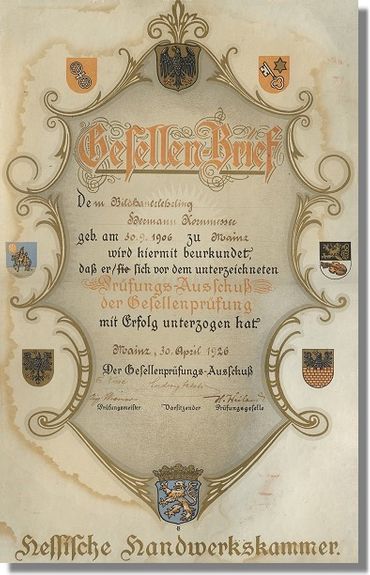 Gesellen-Brief
Dem Bildhauerlehrling
Hermann Kornmesser
geb. am 30.9.1906 zu Mainz
wird hiermit beurkundet,
daß er/sie sich vor dem unterzeichneten
Prüfungs-Ausschuß
der Gesellenprüfung
mit Erfolg unterzogen hat.
Mainz, 30. April 1926
Der Gesellenprüfungs-Ausschuß
Prüfungsmeister Vorsitzender Prüfungsgeselle
Hessische Handwerkskammer.